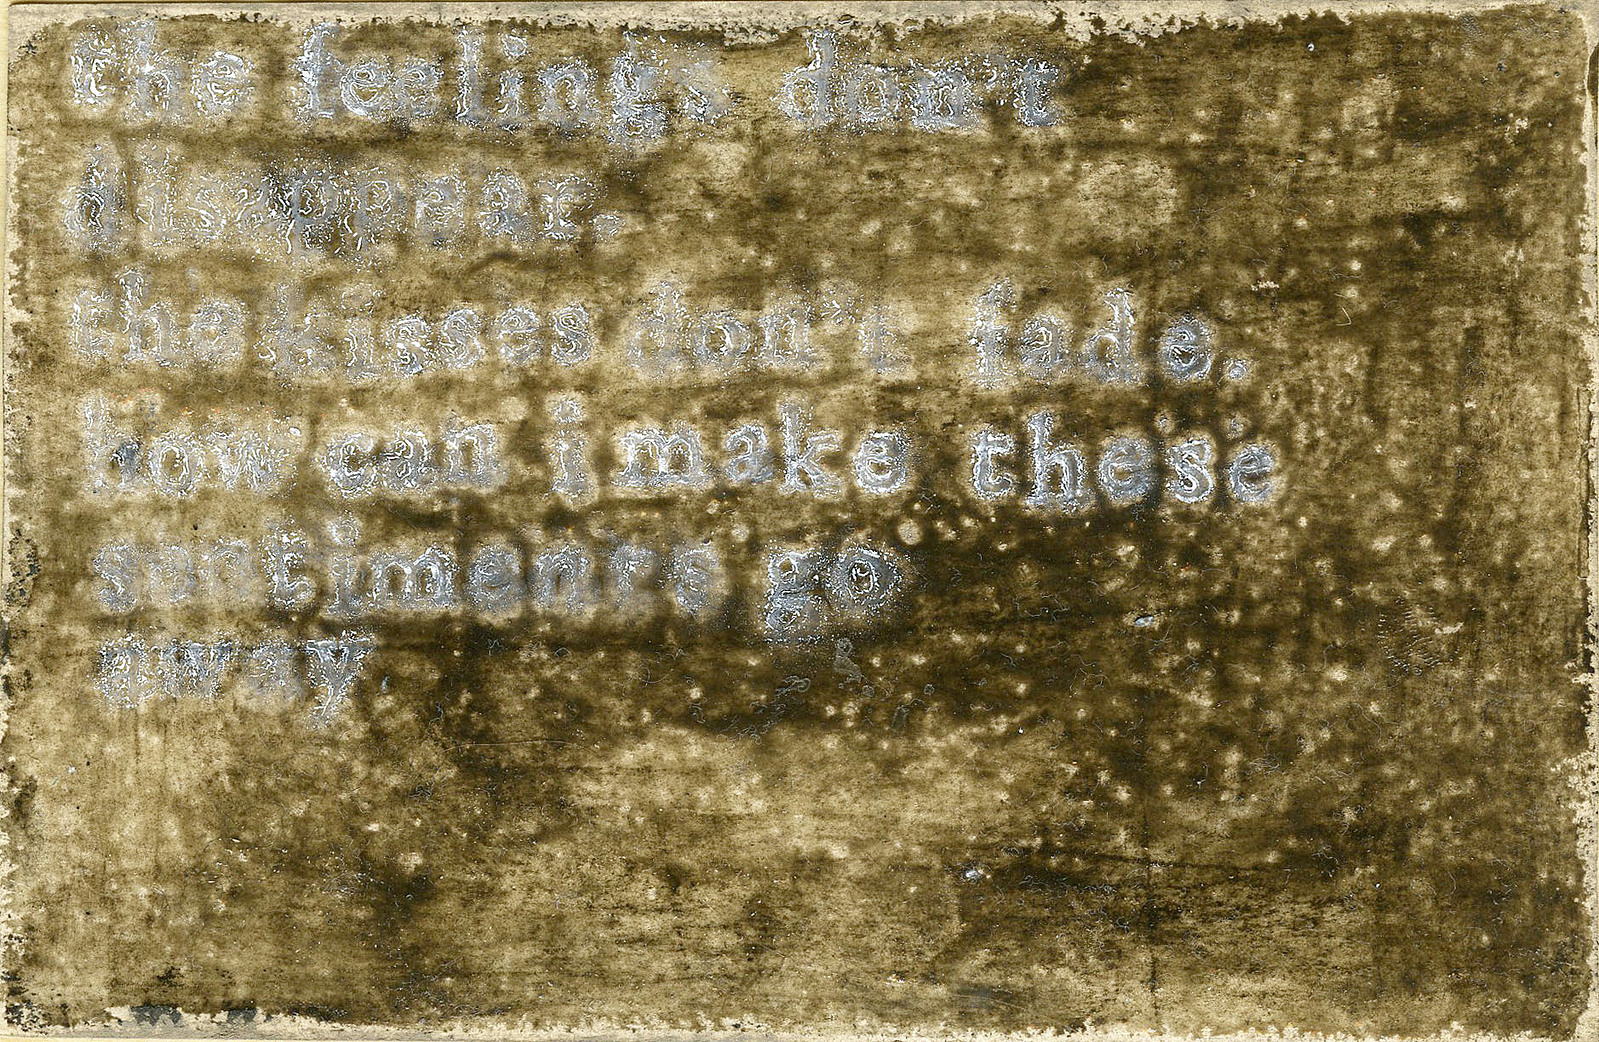 the feelings don't
disappear.
the kisses don't fade.
how can i make these
sentiments go
away